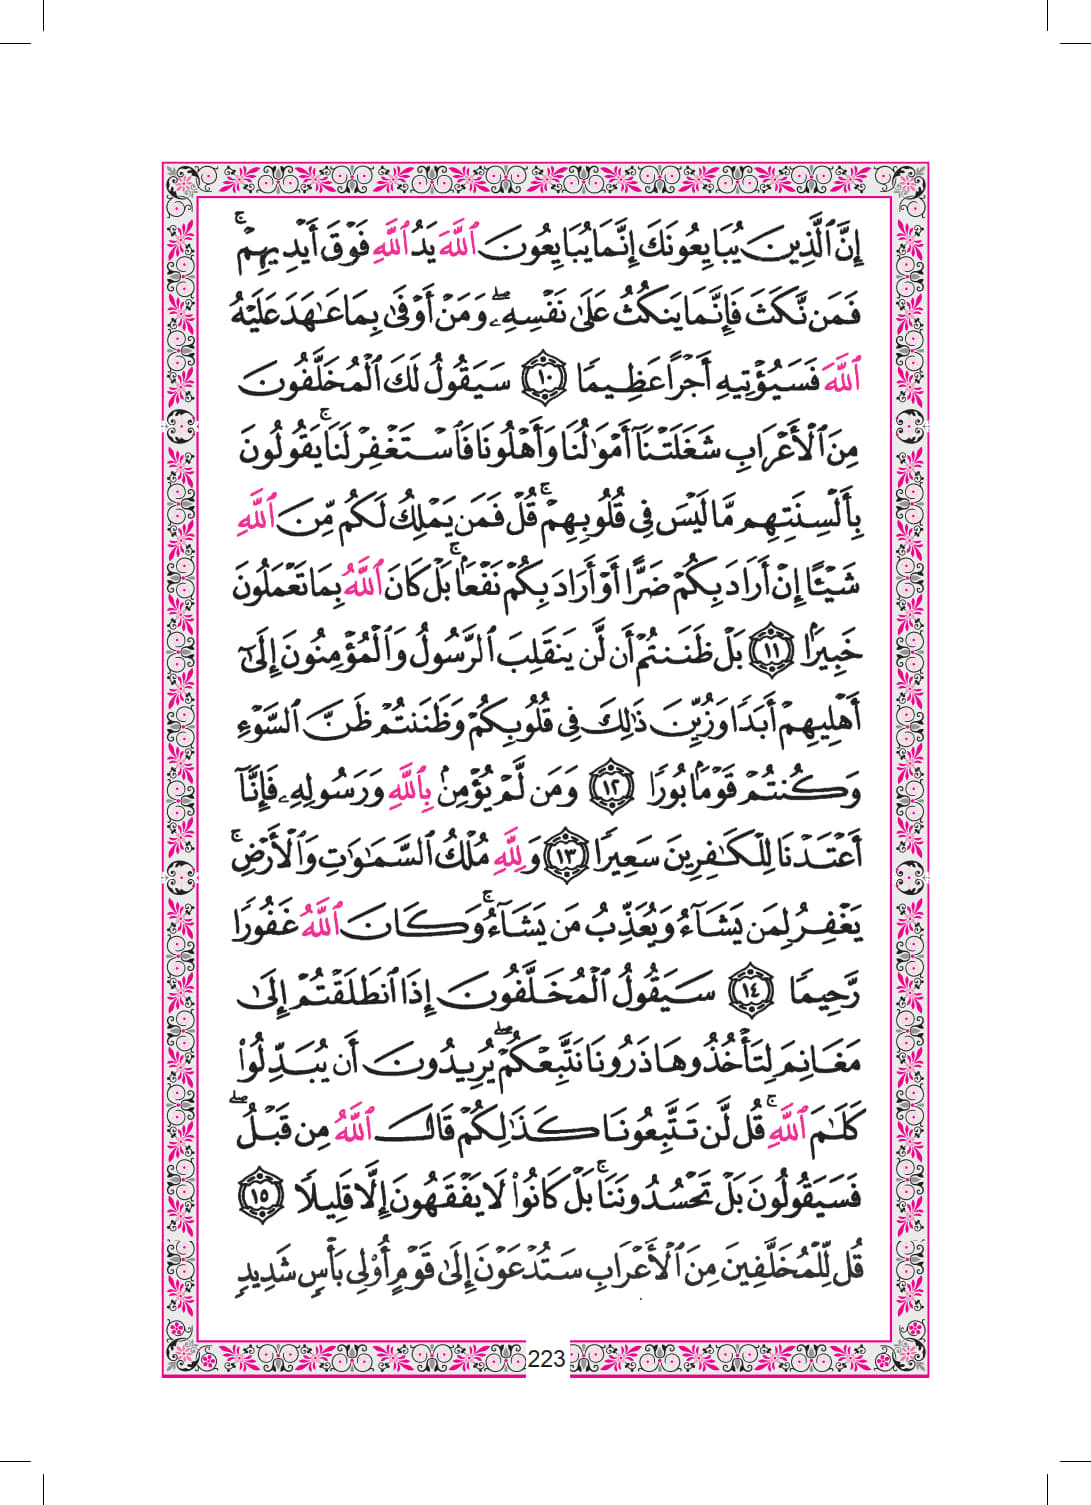 إِنَّ ٱلَّذِينَ يُبَايِعُونَكَ إِنَّمَا يُبَايِعُونَ ٱللَّهَ يَدُ ٱللَّهِ فَوْقَ أَيْدِيهِمْ ۚ
فَمَن نَّكَثَ فَإِنَّمَا يَنكُثُ عَلَىٰ نَفْسِهِۦ ۖ وَمَنْ أَوْفَىٰ بِمَا عَـٰهَدَ عَلَيْهُ
ٱللَّهَ فَسَيُؤْتِيهِ أَجْرًا عَظِيمًا ١٠ سَيَقُولُ لَكَ ٱلْمُخَلَّفُونَ
مِنَ ٱلْأَعْرَابِ شَغَلَتْنَآ أَمْوَٰلُنَا وَأَهْلُونَا فَٱسْتَغْفِرْ لَنَا ۚ يَقُولُونَ
بِأَلْسِنَتِهِم مَّا لَيْسَ فِى قُلُوبِهِمْ ۚ قُلْ فَمَن يَمْلِكُ لَكُم مِّنَ ٱللَّهِ
شَيْـًٔا إِنْ أَرَادَ بِكُمْ ضَرًّا أَوْ أَرَادَ بِكُمْ نَفْعًۢا ۚ بَلْ كَانَ ٱللَّهُ بِمَا تَعْمَلُونَ
خَبِيرًۢا ١١ بَلْ ظَنَنتُمْ أَن لَّن يَنقَلِبَ ٱلرَّسُولُ وَٱلْمُؤْمِنُونَ إِلَىٰٓ
أَهْلِيهِمْ أَبَدًا وَزُيِّنَ ذَٰلِكَ فِى قُلُوبِكُمْ وَظَنَنتُمْ ظَنَّ ٱلسَّوْءِ
وَكُنتُمْ قَوْمًۢا بُورًا ١٢ وَمَن لَّمْ يُؤْمِنۢ بِٱللَّهِ وَرَسُولِهِۦ فَإِنَّآ
أَعْتَدْنَا لِلْكَـٰفِرِينَ سَعِيرًا ١٣ وَلِلَّهِ مُلْكُ ٱلسَّمَـٰوَٰتِ وَٱلْأَرْضِ ۚ
يَغْفِرُ لِمَن يَشَآءُ وَيُعَذِّبُ مَن يَشَآءُ ۚ وَكَانَ ٱللَّهُ غَفُورًا
رَّحِيمًا ١٤ سَيَقُولُ ٱلْمُخَلَّفُونَ إِذَا ٱنطَلَقْتُمْ إِلَىٰ
مَغَانِمَ لِتَأْخُذُوهَا ذَرُونَا نَتَّبِعْكُمْ ۖ يُرِيدُونَ أَن يُبَدِّلُوا۟
كَلَـٰمَ ٱللَّهِ ۚ قُل لَّن تَتَّبِعُونَا كَذَٰلِكُمْ قَالَ ٱللَّهُ مِن قَبْلُ ۖ
فَسَيَقُولُونَ بَلْ تَحْسُدُونَنَا ۚ بَلْ كَانُوا۟ لَا يَفْقَهُونَ إِلَّا قَلِيلًا ١٥
قُل لِّلْمُخَلَّفِينَ مِنَ ٱلْأَعْرَابِ سَتُدْعَوْنَ إِلَىٰ قَوْمٍ أُو۟لِى بَأْسٍ شَدِيدٍ
223